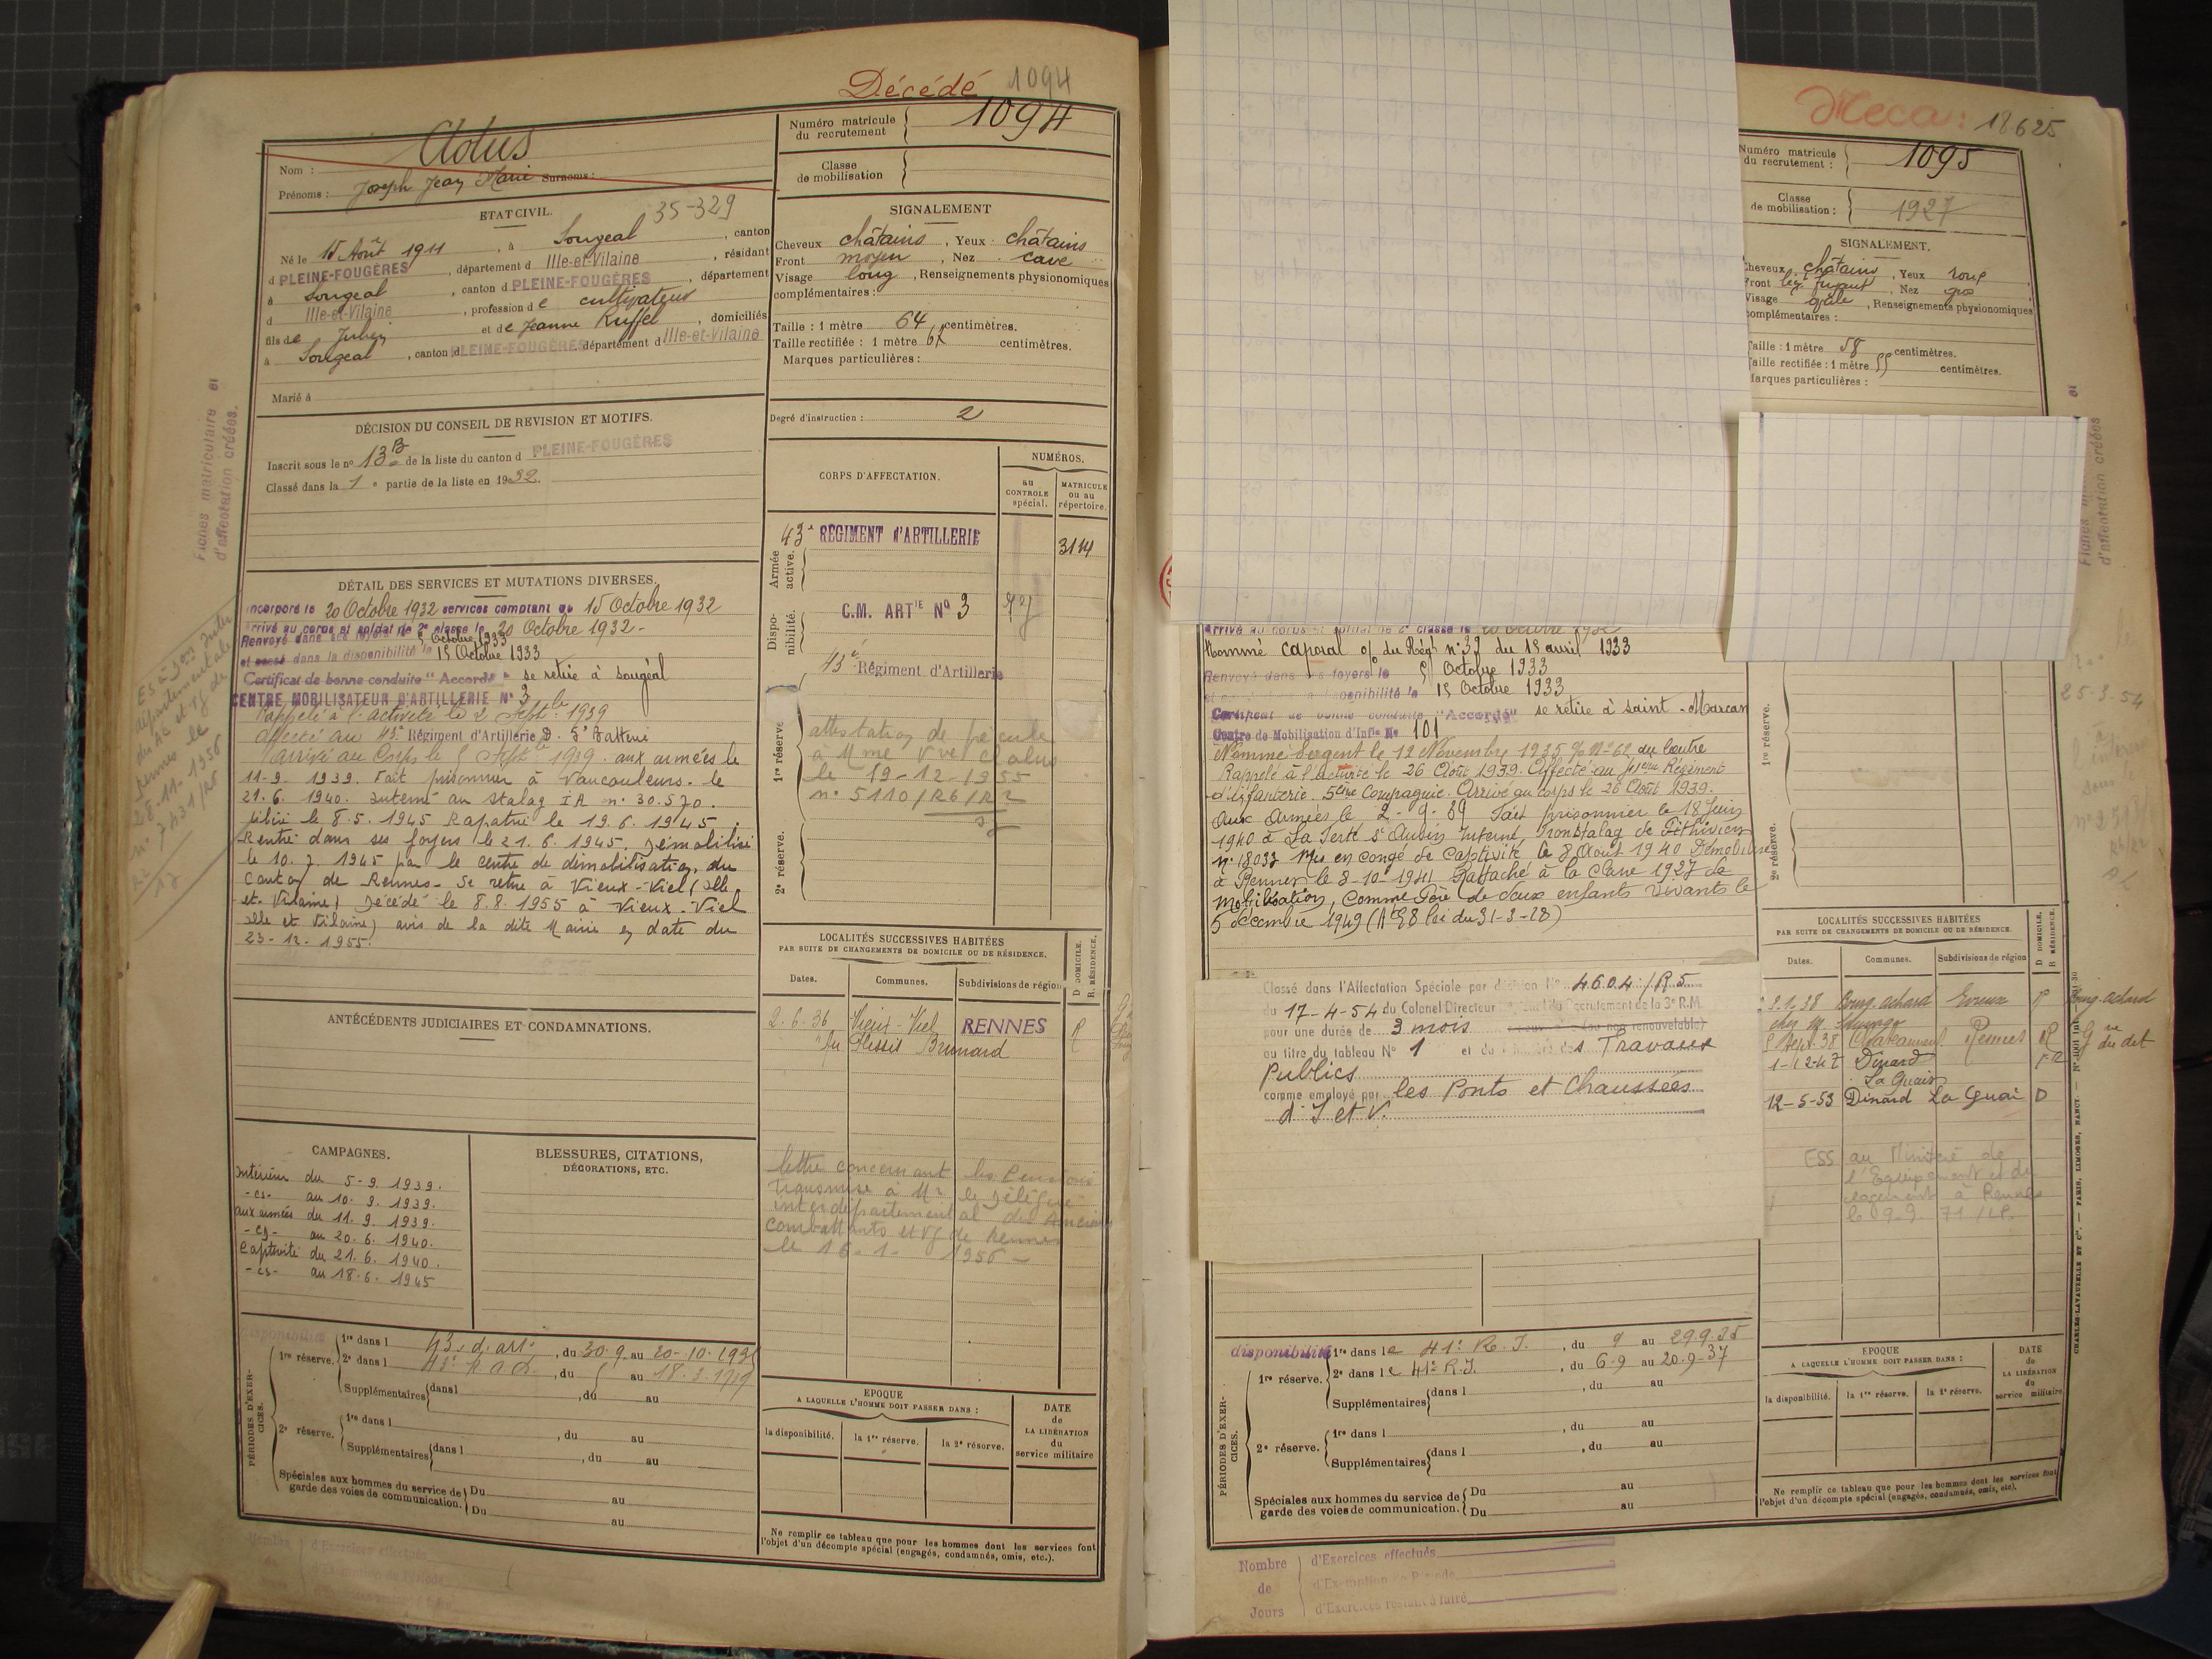 Décédé 1094
Clolus
Nom :
Prénoms : Joseph Jean Marie Surnoms :
Numéro matricule du recrutement 1094
Classe de mobilisation
ETAT CIVIL. 35-329
Né le 15 Août 1911, à Sougeal, canton
d PLEINE-FOUGÈRES, département d Ille-et-Vilaine, résidant
à Sougeal, canton d PLEINE-FOUGÈRES, département
d Ille-et-Vilaine, profession de cultivateur
fils de Julien et de Jeanne Ruffel, domiciliés
à Sougeal, canton d PLEINE-FOUGÈRES département d Ille-et-Vilaine
Marié à
SIGNALEMENT
Cheveux châtains, Yeux châtains
Front moyen, Nez cave
Visage long, Renseignements physionomiques
complémentaires :
Taille : 1 mètre 64 centimètres.
Taille rectifiée : 1 mètre centimètres.
Marques particulières :
Degré d'instruction : 2
DÉCISION DU CONSEIL DE REVISION ET MOTIFS.
Inscrit sous le no 13 B de la liste du canton d PLEINE-FOUGÈRES
Classé dans la 1e partie de la liste en 1932.
CORPS D'AFFECTATION.
NUMÉROS.
au CONTROLE spécial.
MATRICULE ou au répertoire.
Armée active.
43e RÉGIMENT d'ARTILLERIE
3114
Disponibilité.
C.M. ARTIE No 3
43e Régiment d'Artillerie
1re réserve
attestation de pécule
à Mme Vve Clolus
le 19-12-1955
n° 5110/R6/R2
2e réserve.
Fiches matriculaire et
d'affectation créées.
DÉTAIL DES SERVICES ET MUTATIONS DIVERSES.
Incorporé le 20 Octobre 1932 services comptant du 15 Octobre 1932
Arrivé au corps et soldat de 2e classe le 20 Octobre 1932-
Renvoyé dans ses foyers le 5 Octobre 1933
et passé dans la disponibilité le 15 Octobre 1933
Certificat de bonne conduite "Accordé" se retire à Sougéal
CENTRE MOBILISATEUR D'ARTILLERIE No 3
Rappelé à l'activité le 2 Septbre 1939
Affecté au 43e Régiment d'Artillerie D. 5e Batterie
arrivé au Corps le 5 Septbre 1939. aux armées le
11-9-1939. Fait prisonnier à Vaucouleurs. le
21.6.1940. interné au Stalag IA n° 30.570.
libéré le 8.5.1945 Rapatrié le 19.6.1945.
Rentré dans ses foyers le 21.6.1945. Démobilisé
le 10.7.1945 par le centre de démobilisation du
Canton de Rennes- Se retire à Vieux-Viel (Ille
et Vilaine) Décédé le 8.8.1955 à Vieux-Viel
Ille et Vilaine) avis de la dite Mairie en date du
23-12.1955.
ANTÉCÉDENTS JUDICIAIRES ET CONDAMNATIONS.
LOCALITÉS SUCCESSIVES HABITÉES
PAR SUITE DE CHANGEMENTS DE DOMICILE OU DE RÉSIDENCE.
D DOMICILE.
R. RÉSIDENCE.
Dates. Communes. Subdivisions de région
2-6-36 Vieux-Viel RENNES R
Plessis Brunard
lettre concernant les Pensions
transmise à Mr le Délégué
interdépartemental des Anciens
combattants et VG de Rennes
le 16-1-1956-
CAMPAGNES.
Intérieur du 5-9.1939.
-cs- au 10.9.1939.
aux armées du 11.9.1939.
-cs- au 20.6.1940.
Captivité du 21.6.1940.
-cs- au 18.6.1945
BLESSURES, CITATIONS,
DÉCORATIONS, ETC.
PÉRIODES D'EXERCICES.
disponibilité
1re réserve. 1re dans l 43e d'art., du 30.9 au 20-10-193
2e dans l 43e R.A.D., du au 18.3.19
Supplémentaires dans l, du au
2e réserve. 1re dans l, du au
Supplémentaires dans l, du au
Spéciales aux hommes du service de garde des voies de communication. Du au
Du au
EPOQUE
A LAQUELLE L'HOMME DOIT PASSER DANS :
la disponibilité. la 1re réserve. la 2e réserve.
DATE de LA LIBÉRATION du service militaire
Ne remplir ce tableau que pour les hommes dont les services font
l'objet d'un décompte spécial (engagés, condamnés, omis, etc.).
Meca : 18625
Numéro matricule du recrutement : 1095
Classe de mobilisation : 1927
SIGNALEMENT.
Cheveux châtains, Yeux roux
Front leg. fuyant, Nez gros
Visage, Renseignements physionomiques
complémentaires :
Taille : 1 mètre 58 centimètres.
Taille rectifiée : 1 mètre 55 centimètres.
Marques particulières :
Arrivé au corps et soldat de 2e classe le 20 Octobre 1932
Nommé caporal o/ du Régt n° 37 du 15 avril 1933
Renvoyé dans ses foyers le 5 Octobre 1933
et passé dans la disponibilité le 15 Octobre 1933
Certificat de bonne conduite "Accordé" se retire à Saint-Marcan
Centre de Mobilisation d'Infie No 101
Nommé Sergent le 12 Novembre 1935 % N° 62 du Centre
Rappelé à l'activité le 26 Août 1939. Affecté au Régiment
d'infanterie. 5eme Compagnie. Arrivé au corps le 26 Août 1939.
Aux Armées le 2-9-39 Fait prisonnier le 18 Juin
1940 à La Ferté St Aubin Interné Frontstalag de Pithiviers
n° 18032 Mis en congé de captivité le 8 Août 1940 Démobilisé
à Rennes le 3-10-1941 Rattaché à la Classe 1927 de
Mobilisation, Comme Père de deux enfants vivants le
5 décembre 1949 (Art 58 loi du 31-3-28)
Classé dans l'Affectation Spéciale par décision No 4604/R5
du 17-4-54 du Colonel Directeur du Recrutement de la 3e R.M.
pour une durée de 3 mois renouvelable)
au titre du tableau No 1 et du des Travaux
Publics
comme employé par les Ponts et Chaussées
d'I et V.
1re réserve.
2e réserve.
25-3-54
LOCALITÉS SUCCESSIVES HABITÉES
PAR SUITE DE CHANGEMENTS DE DOMICILE OU DE RÉSIDENCE.
D DOMICILE.
R RÉSIDENCE.
Dates. Communes. Subdivisions de région
3.1.38 Bourg-achard Evreux R
Sept.38 Chateauneuf Rennes R
1-12-47 Dinard
La Guais
12-5-53 Dinard La Guai D
ESS au Ministère de
l'Equipement et du
logement à Rennes
le 09.9.71/LP.
PÉRIODES D'EXERCICES.
disponibilité
1re réserve. 1re dans le 41e R.I., du 9 au 29.9.35
2e dans le 41e R.I., du 6-9 au 20.9-37
Supplémentaires dans l, du au
, du au
2e réserve. 1re dans l, du au
Supplémentaires dans l, du au
Spéciales aux hommes du service de garde des voies de communication. Du au
Du au
EPOQUE
A LAQUELLE L'HOMME DOIT PASSER DANS :
la disponibilité. la 1re réserve. la 2e réserve.
DATE de LA LIBÉRATION du service militaire
Ne remplir ce tableau que pour les hommes dont les services font
l'objet d'un décompte spécial (engagés, condamnés, omis, etc).
CHARLES-LAVAUZELLE ET Cie. — PARIS, LIMOGES, NANCY.
Nombre de Jours
d'Exercices effectués
d'Exemption de Période
d'Exercices restant à faire